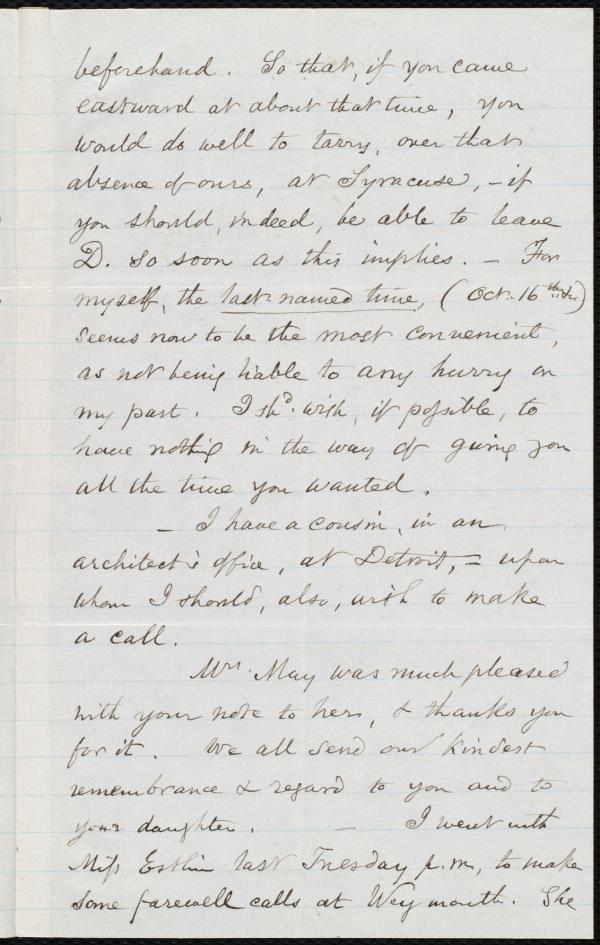 beforehand. So that, if you came
eastward at about that time, you
would do well to tarry, over that
absence of ours, at Syracuse, - if
you should, indeed, be able to leave
D. so soon as this implies. - For
myself, the last-named time, (Oct. 16th
seems now to be the most convenient,
as not being liable to any hurry on
my part. I shd. wish, if possible, to
have nothing in the way of giving you
all the time you wanted.
- I have a cousin, in an
architect's office, at Detroit, - upon
whom I should, also, wish to make
a call.
Mrs. May was much pleased
with your note to her, & thanks you
for it. We all send our kindest
remembrance & regard to you and to
your daughter. - I went with
Miss last Tuesday p.m., to make
some farewell calls at Weymouth. She